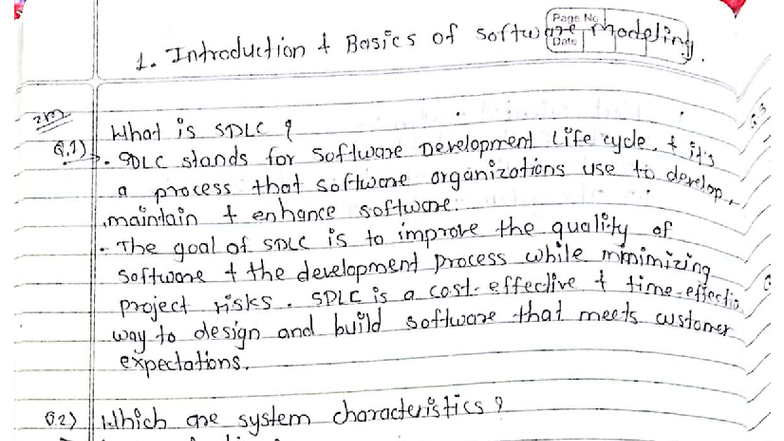 Page No
Date
1. Introduction & Basics of software modeling.
2m
Q.1) What is SDLC ?
→. SDLC stands for Software Development Life cycle. & it's
a process that software organizations use to develop,
maintain & enhance software.
. The goal of SDLC is to improve the quality of
software & the development process while minimizing
project risks. SDLC is a cost-effective & time-effectiv
way to design and build software that meets customer
expectations.
Q2) Which are system characteristics ?